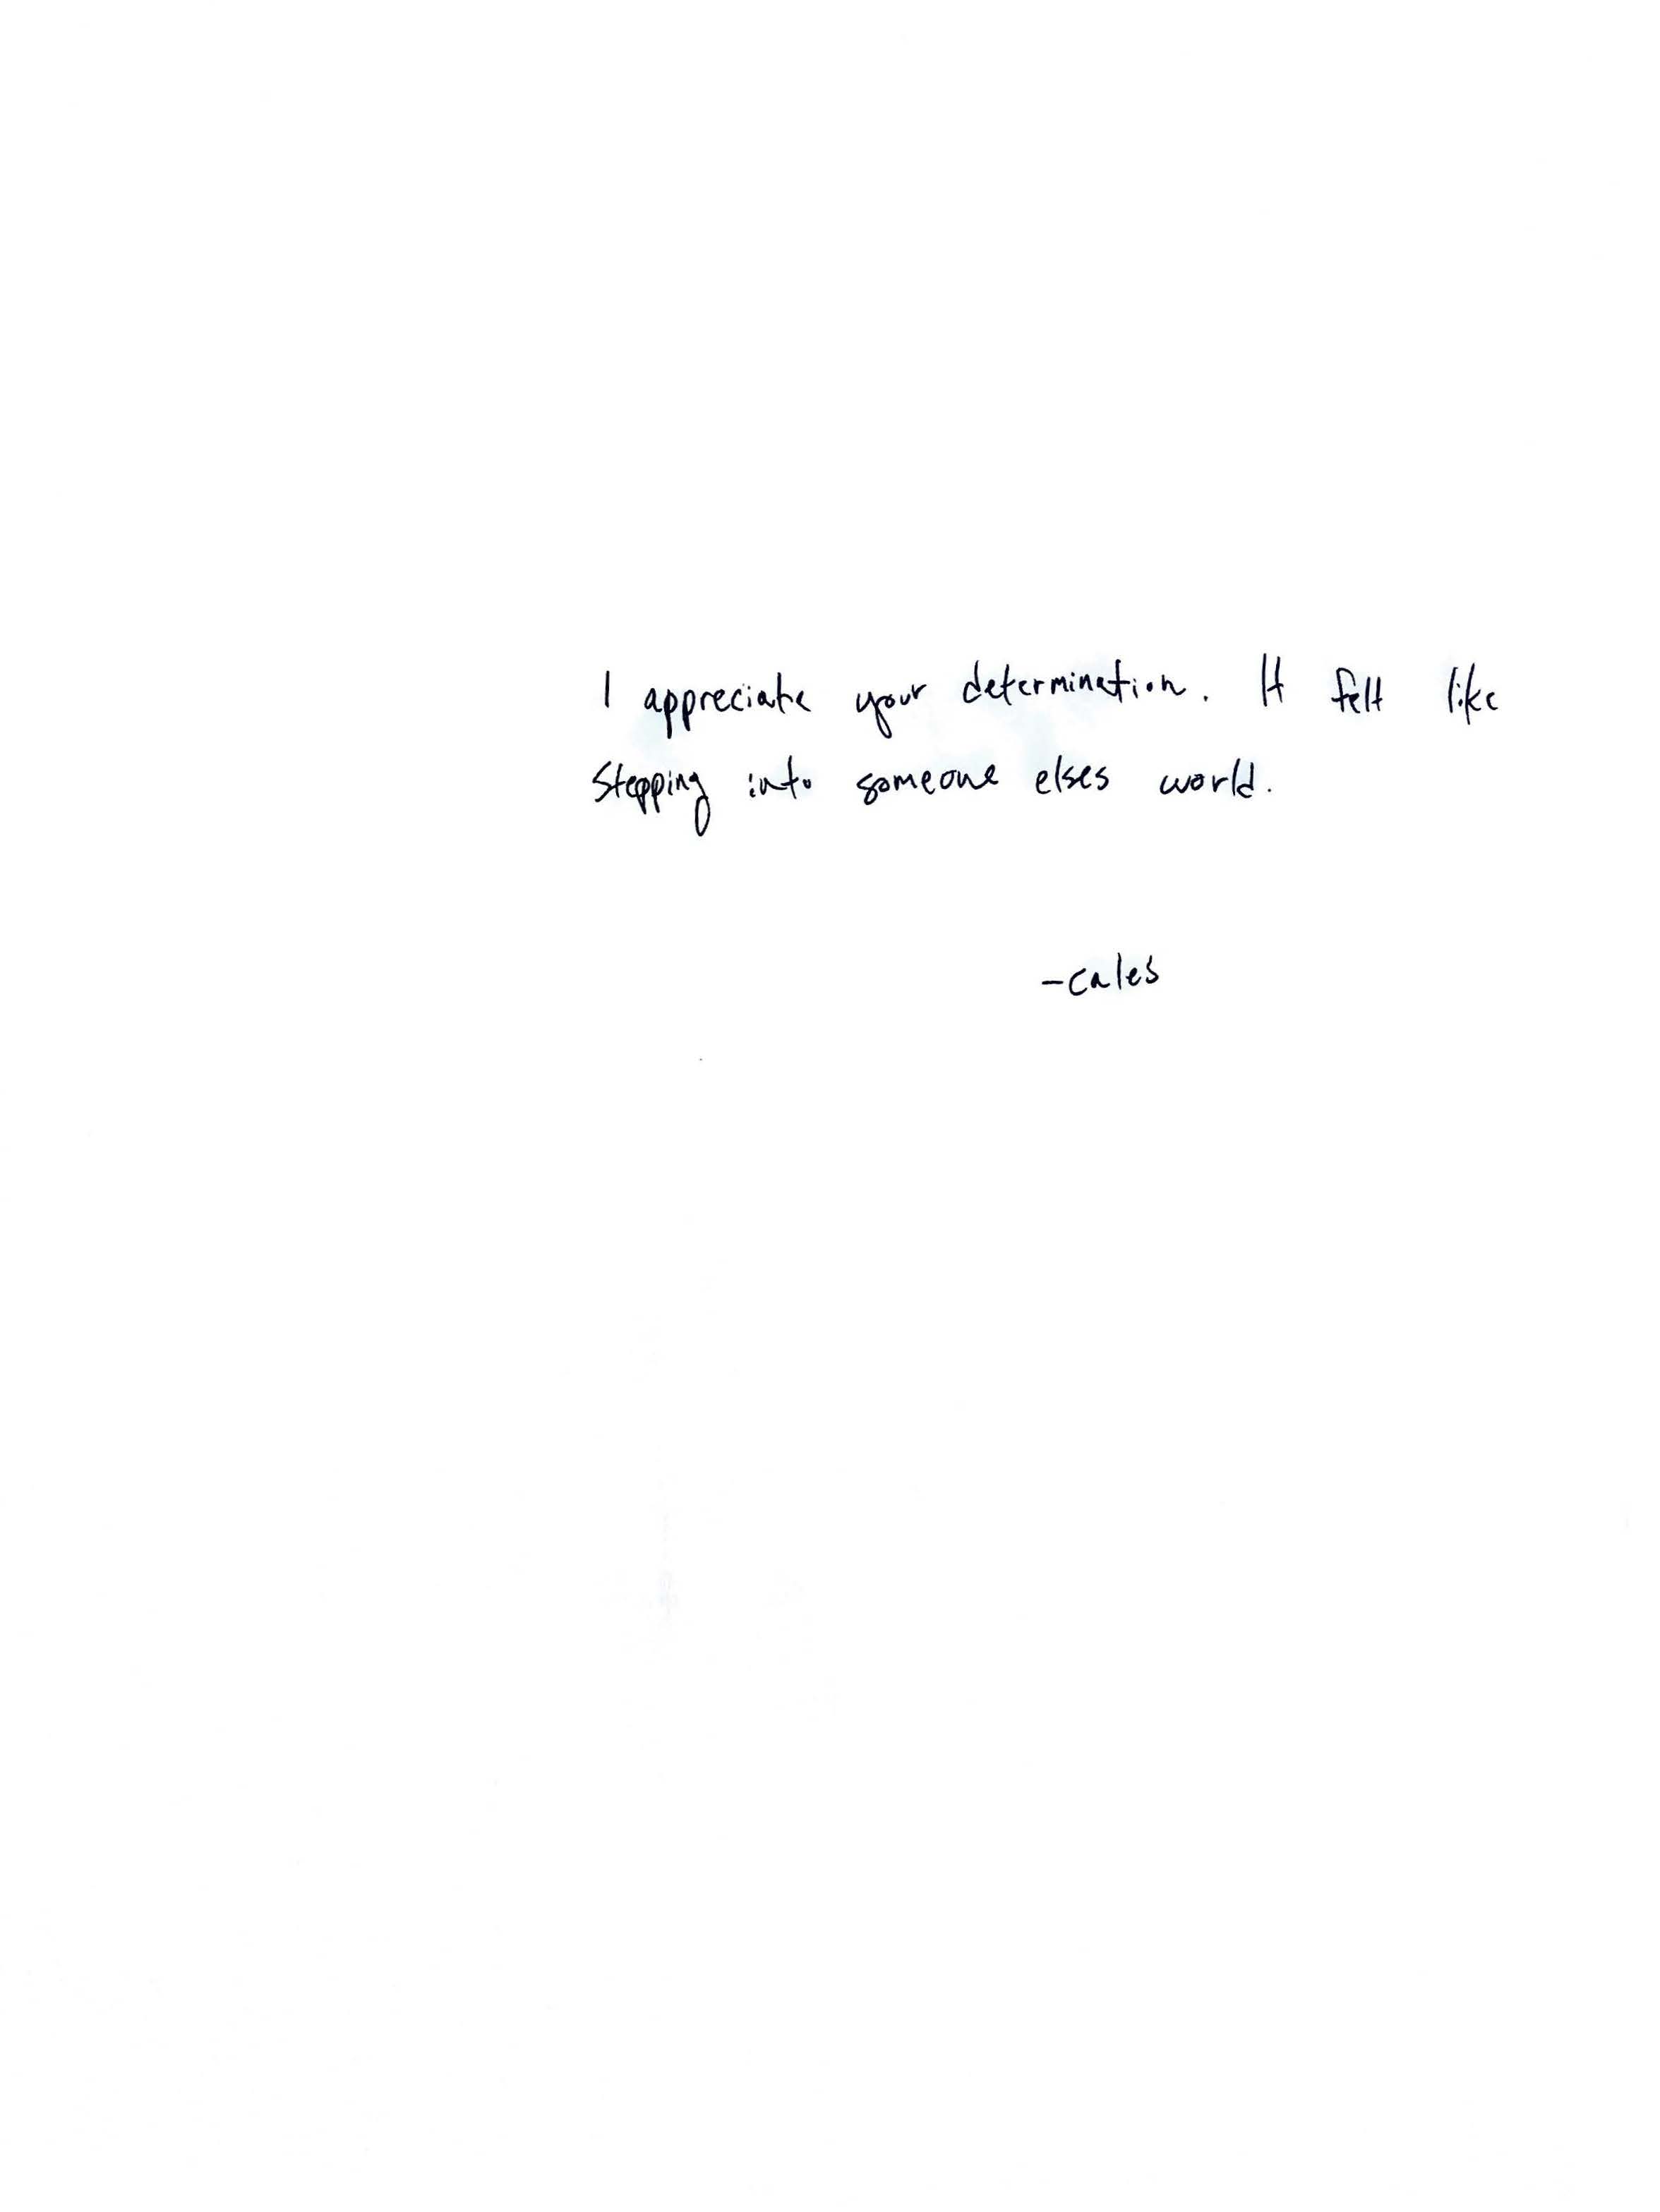 I appreciate your determination. It felt like
stepping into someone elses world.
-caleb